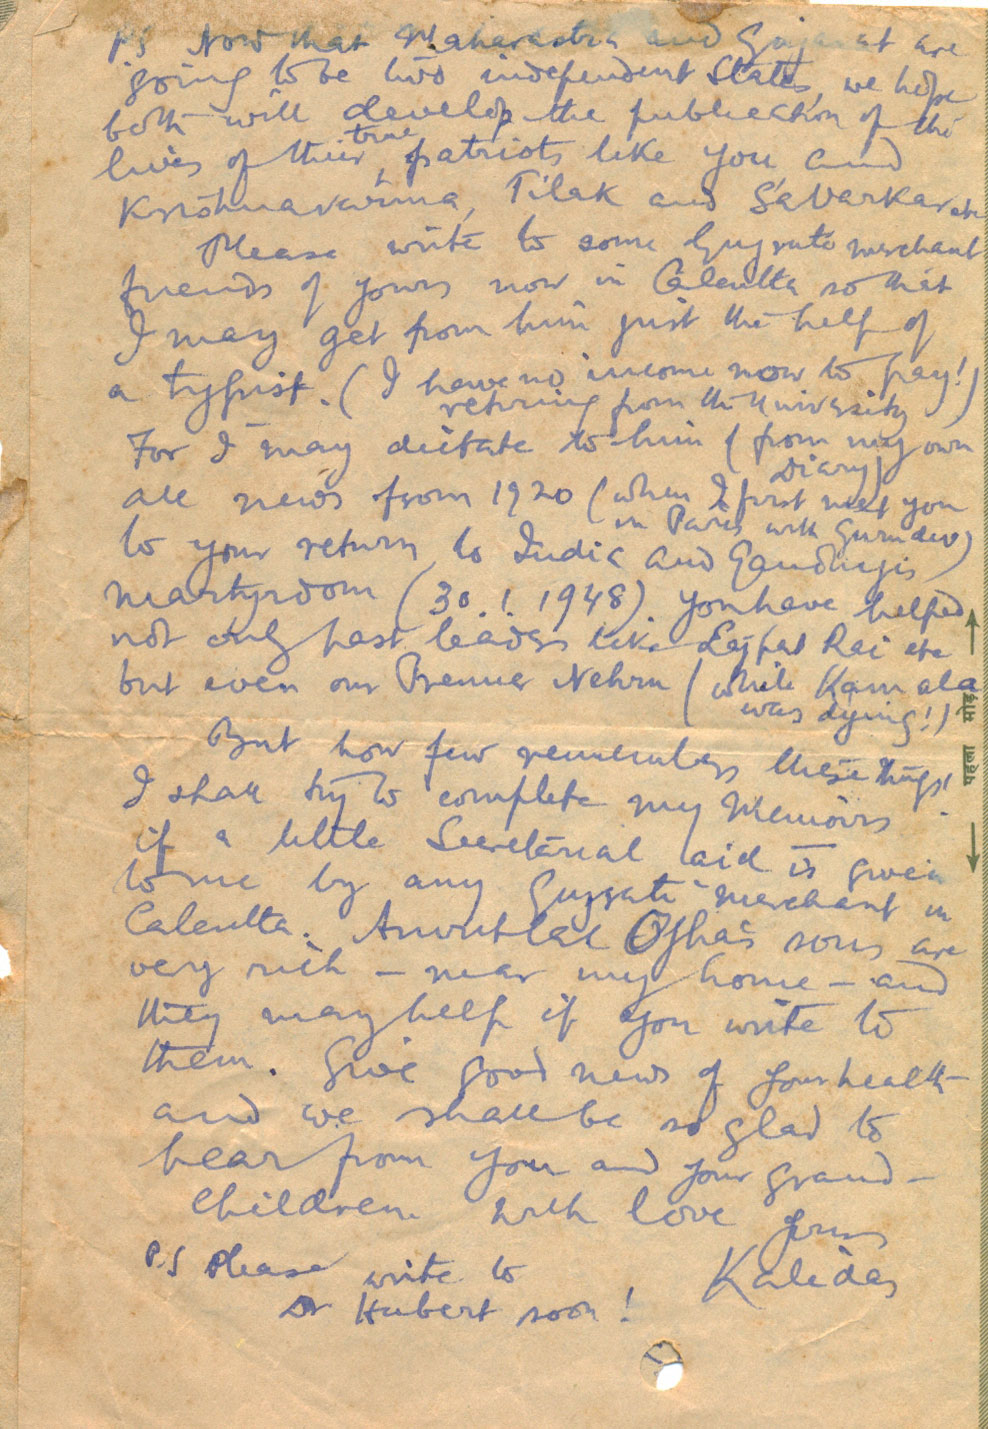 P.S Now that Maharastra and Gujarat are
going to be two independent States, we hope
both will develop the publication of the
lives of their true patriots like you and
Krishnavarma, Tilak and Savarkar etc
Please write to some Gujrati merchant
friends of yours now in Calcutta so that
I may get from him just the help of
a typist. (I have no income now to pay!)
retiring from the University
For I may dictate to him (from my own
Diary)
all news from 1920 (when I first met you
in Paris with Gurudev)
to your return to India and Gandhiji's
martyrdom (30.1.1948). You have helped
not only past leaders like Lajpat Rai etc
but even our Premier Nehru (while Kamala
was dying!)
But how few remembers these things!
I shall try to complete my Memoirs
if a little Secretarial aid is given
to me by any Gujrati merchant in
Calcutta. Amritlal Ojha's sons are
very rich – near my home – and
they may help if you write to
them. Give good news of your health
and we shall be so glad to
hear from you and your grand-
children with love yours
Kalidas
P.S Please write to
Dr Hubert soon!
पहला मोड़